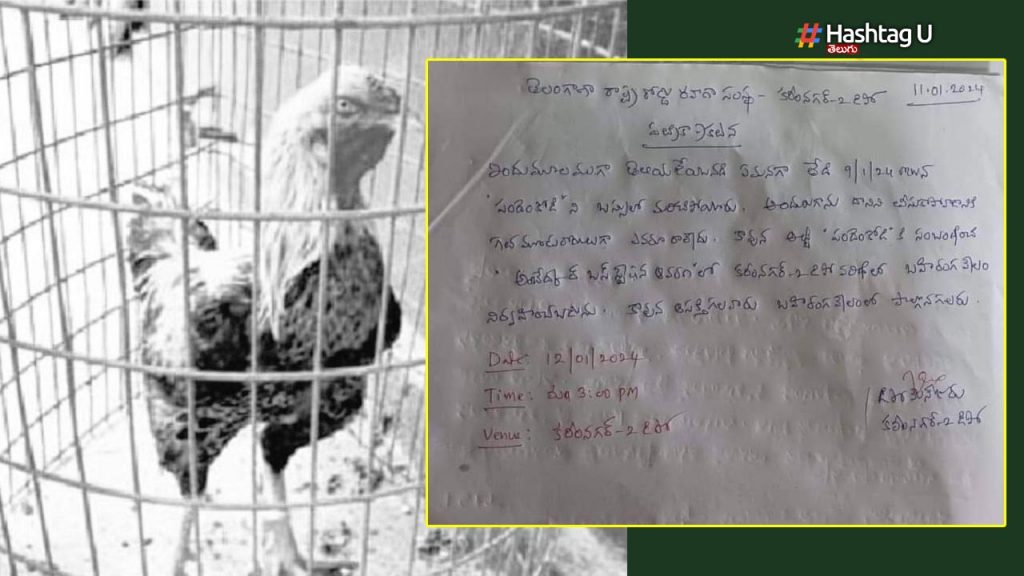 # Hashtag U
తెలుగు
తెలంగాణా రాష్ట్ర రోడ్డు రవాణా సంస్థ - కరీంనగర్-2 డిపో 11.01.2024
పత్రికా ప్రకటన
ఇందుమూలముగా తెలియజేయునది ఏమనగా తేది 9/1/24 రోజున
"పందెంకోడి" ని బస్సులో మరచిపోయారు. అందులకుగాను దానిని తీసుకుపోవడానికి
గత మూడురోజులుగా ఎవరూ రాలేదు. కావున అట్టి "పందెంకోడి" కి సంబంధించిన
కరీంనగర్-2 డిపో పరిధిలో బహిరంగ వేలం
నిర్వహించబడును. కావున ఆసక్తిగలవారు బహిరంగ వేలంలో పాల్గొనగలరు.
Date: 12/01/2024
Time: మ॥ 3:00 PM
Venue: కరీంనగర్-2 డిపో
డిపో మేనేజరు
కరీంనగర్-2 డిపో